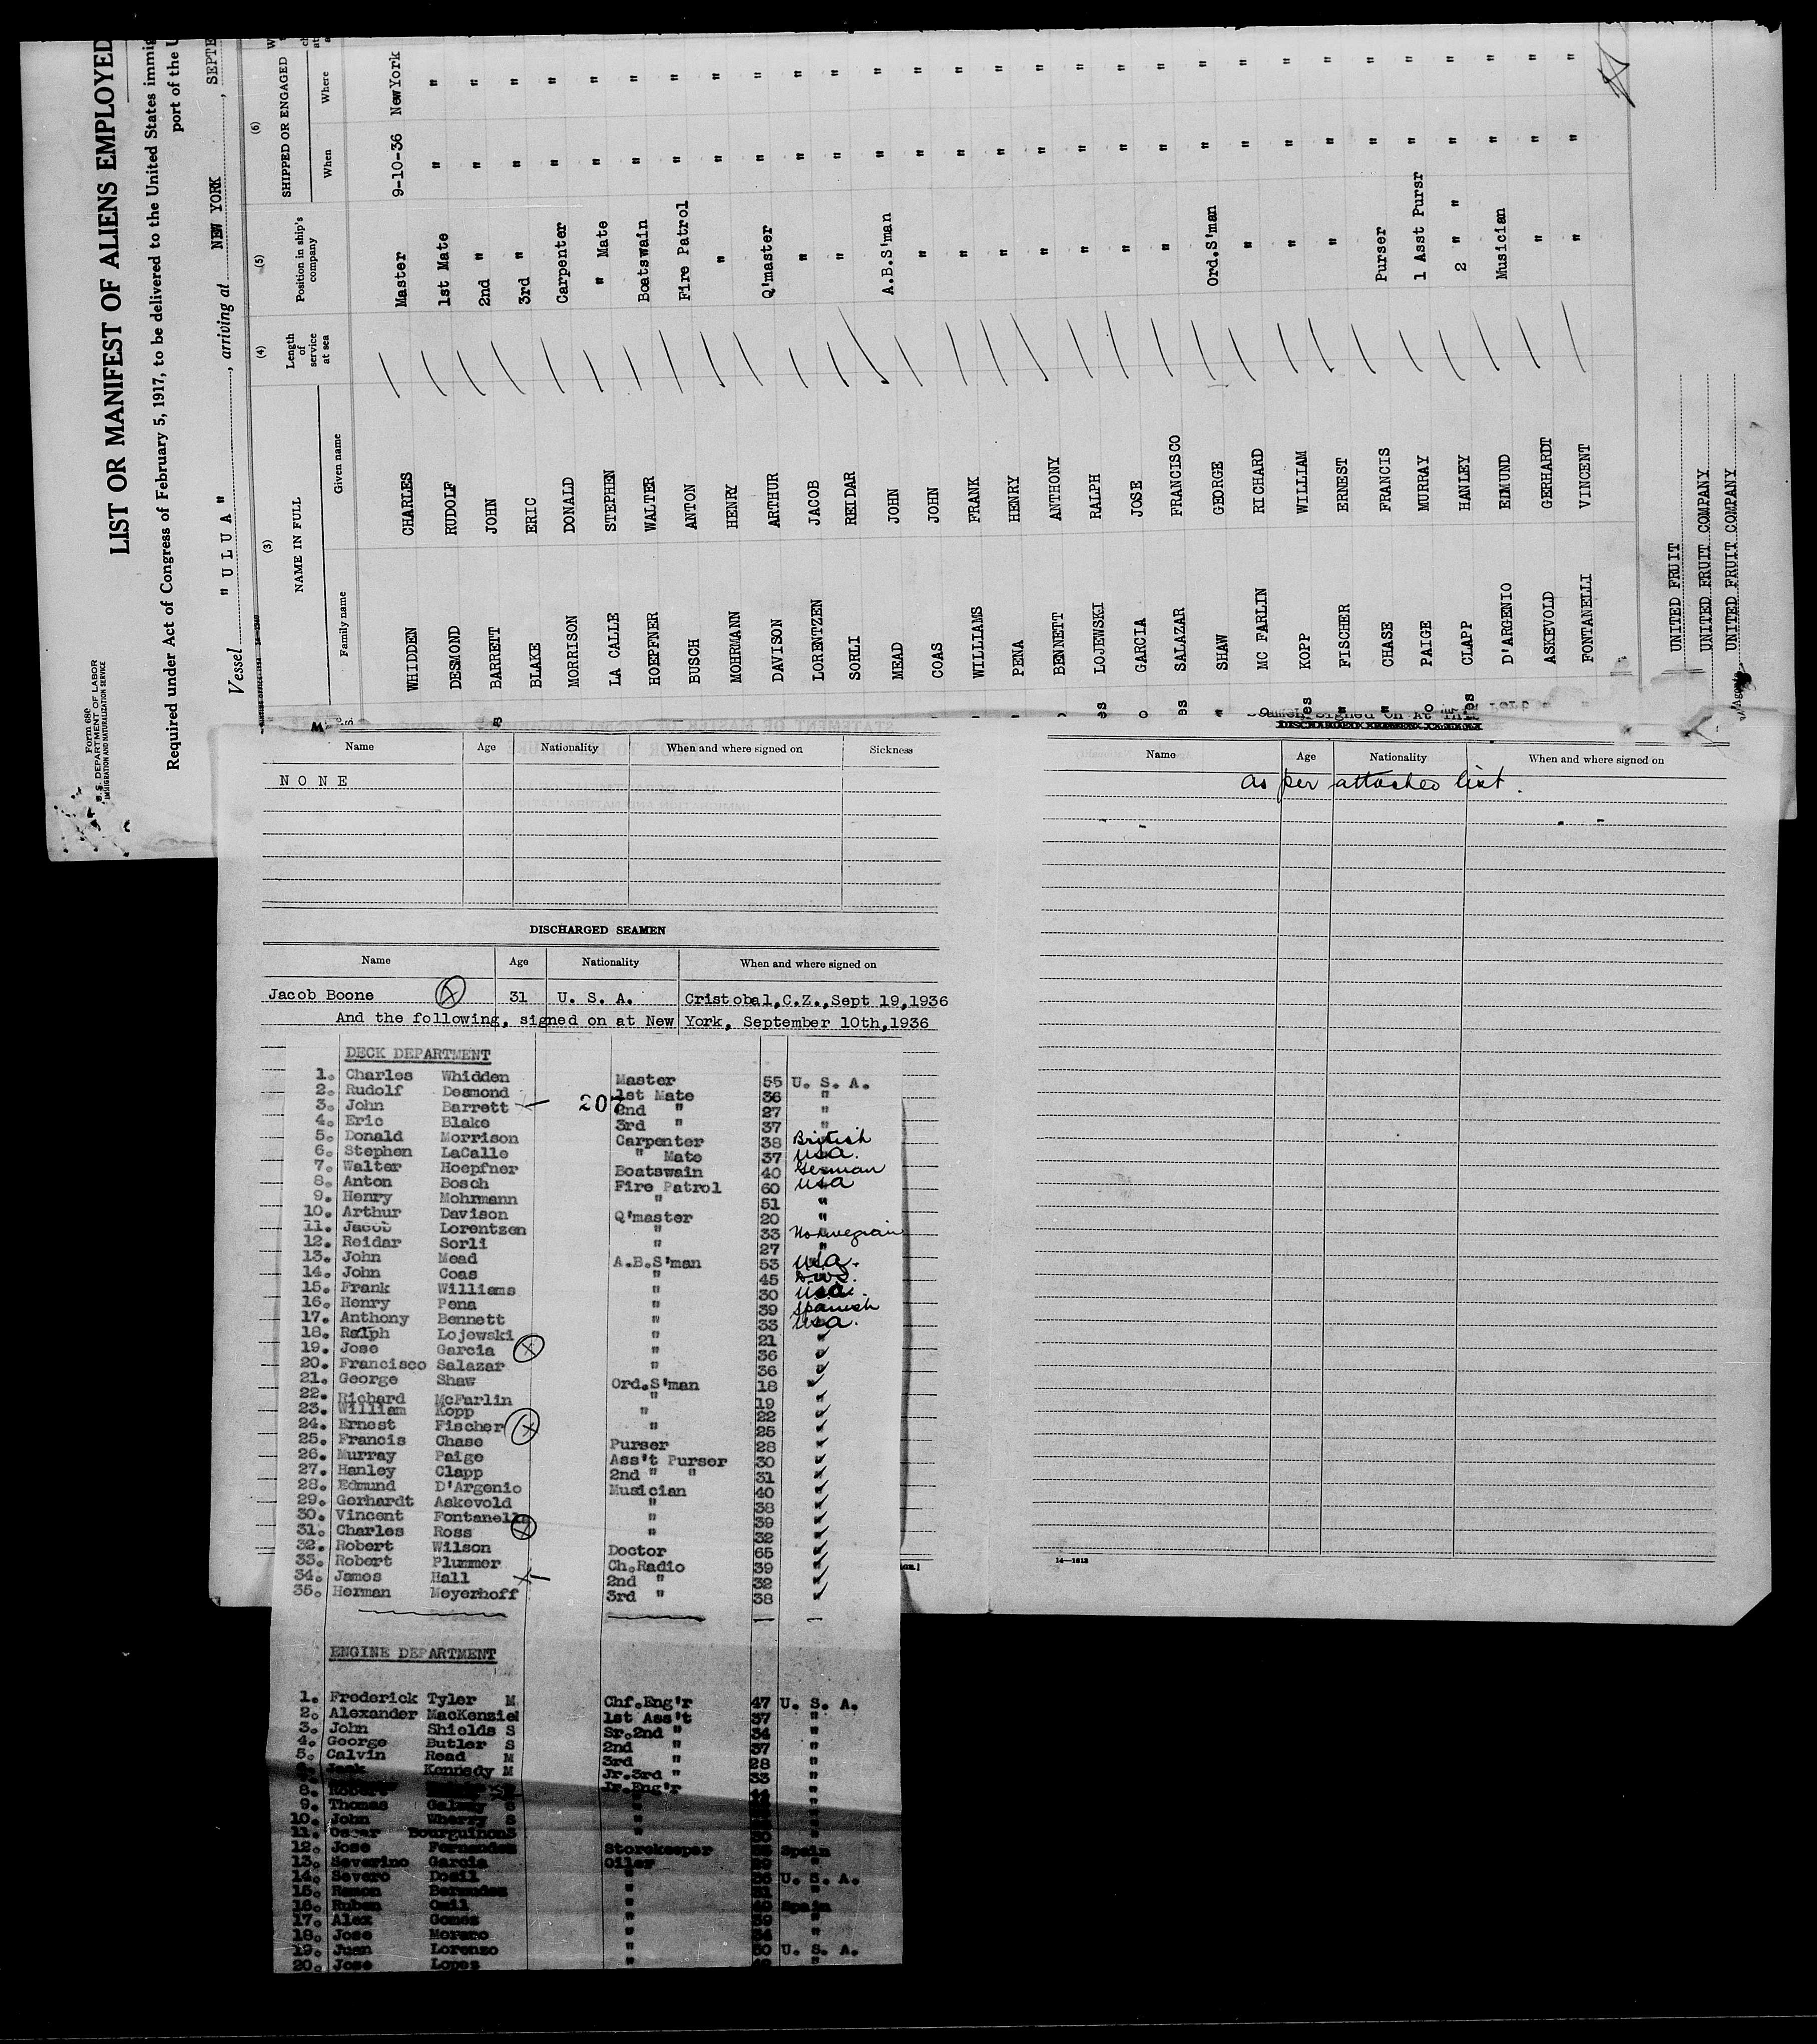 Form 680
U. S. DEPARTMENT OF LABOR
IMMIGRATION AND NATURALIZATION SERVICE
LIST OR MANIFEST OF ALIENS EMPLOYED
Required under Act of Congress of February 5, 1917, to be delivered to the United States immig
port of the U
Vessel " U L U A " , arriving at NEW YORK , SEPTE
(3) (4) (5) (6)
NAME IN FULL Length of service at sea Position in ship's company SHIPPED OR ENGAGED
Family name Given name When Where
WHIDDEN CHARLES Master 9-10-36 NewYork
DESMOND RUDOLF 1st Mate " "
BARRETT JOHN 2nd " " "
BLAKE ERIC 3rd " " "
MORRISON DONALD Carpenter " "
LA CALLE STEPHEN " Mate " "
HOEPFNER WALTER Boatswain " "
BUSCH ANTON Fire Patrol " "
MOHRMANN HENRY " " "
DAVISON ARTHUR Q'master " "
LORENTZEN JACOB " " "
SORLI REIDAR " " "
MEAD JOHN A.B.S'man " "
COAS JOHN " " "
WILLIAMS FRANK " " "
PENA HENRY " " "
BENNETT ANTHONY " " "
LOJEWSKI RALPH " " "
GARCIA JOSE " " "
SALAZAR FRANCISCO " " "
SHAW GEORGE Ord.S'man " "
MC FARLIN RICHARD " " "
KOPP WILLIAM " " "
FISCHER ERNEST " " "
CHASE FRANCIS Purser " "
PAIGE MURRAY 1 Asst Pursr " "
CLAPP HANLEY 2 " " " "
D'ARGENIO EDMUND Musician " "
ASKEVOLD GERHARDT " " "
FONTANELLI VINCENT " " "
UNITED FRUIT
UNITED FRUIT COMPANY
UNITED FRUIT COMPANY
Name Age Nationality When and where signed on Sickness
N O N E
DISCHARGED SEAMEN
Name Age Nationality When and where signed on
Jacob Boone 31 U. S. A. Cristobal,C.Z.,Sept 19,1936
And the following, signed on at New York, September 10th,1936
DECK DEPARTMENT
1. Charles Whidden Master 55 U. S. A.
2. Rudolf Desmond 1st Mate 36 "
3. John Barrett 207 2nd " 27 "
4. Eric Blake 3rd " 37 "
5. Donald Morrison Carpenter 38 British
6. Stephen LaCalle " Mate 37 USA.
7. Walter Hoepfner Boatswain 40 German
8. Anton Bosch Fire Patrol 60 USA
9. Henry Mohrmann " 51 "
10. Arthur Davison Q'master 20 "
11. Jacob Lorentzen " 33 Norwegian
12. Reidar Sorli " 27 "
13. John Mead A.B.S'man 53 USA.
14. John Coas " 45
15. Frank Williams " 30 USA.
16. Henry Pena " 39 Spanish
17. Anthony Bennett " 33 USA.
18. Ralph Lojewski " 21 "
19. Jose Garcia " 36 "
20. Francisco Salazar " 36 "
21. George Shaw Ord.S'man 18 "
22. Richard McFarlin " 19 "
23. William Kopp " 22 "
24. Ernest Fischer " 25 "
25. Francis Chase Purser 28 "
26. Murray Paige Ass't Purser 30 "
27. Hanley Clapp 2nd " " 31 "
28. Edmund D'Argenio Musician 40 "
29. Gerhardt Askevold " 38 "
30. Vincent Fontanelli " 39 "
31. Charles Ross " 32 "
32. Robert Wilson Doctor 65 "
33. Robert Plummer Ch.Radio 39 "
34. James Hall 2nd " 32 "
35. Herman Meyerhoff 3rd " 38 "
ENGINE DEPARTMENT
1. Frederick Tyler M Chf.Eng'r 47 U. S. A.
2. Alexander MacKenzie 1st Ass't 37 "
3. John Shields S Sr.2nd " 34 "
4. George Butler S 2nd " 37 "
5. Calvin Read M 3rd " 28 "
Jack Kennedy M Jr.3rd " 33 "
8. Robert Jr.Eng'r "
9. Thomas " "
10. John Wherry S " "
11. Oscar Bourguignon " 30 "
12. Jose Fernandez Storekeeper Spain
13. Severino Garcia Oiler "
14. Severo Dosil " U. S. A.
15. Ramon Bermudez " "
16. Ruben " Spain
17. Alex Gomez " 39 "
18. Jose Moreno " "
19. Juan Lorenzo " 30 U. S. A.
20. Jose Lopez " "
Seamen Signed On At This
DISCHARGED SEAMEN
Name Age Nationality When and where signed on
as per attached list.
14—1613